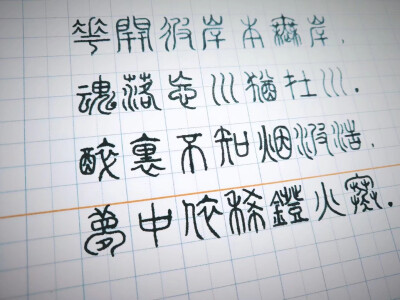 華開彼岸本無岸,
魂落忘川猶在川.
醉裏不知烟波浩,
夢中依稀鐙火寒.